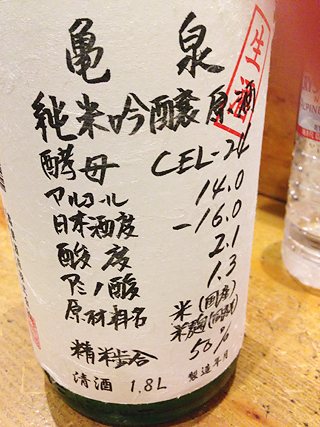 亀泉
生酒
純米吟醸原酒
酵母 CEL-24
アルコール 14.0
日本酒度 -16.0
酸度 2.1
アミノ酸 1.3
原材料名 米(国産)
米麹(国産米)
精米歩合 50%
清酒 1.8L 製造年月